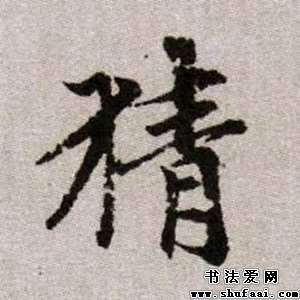 猜
书法爱网
www.shufaai.com